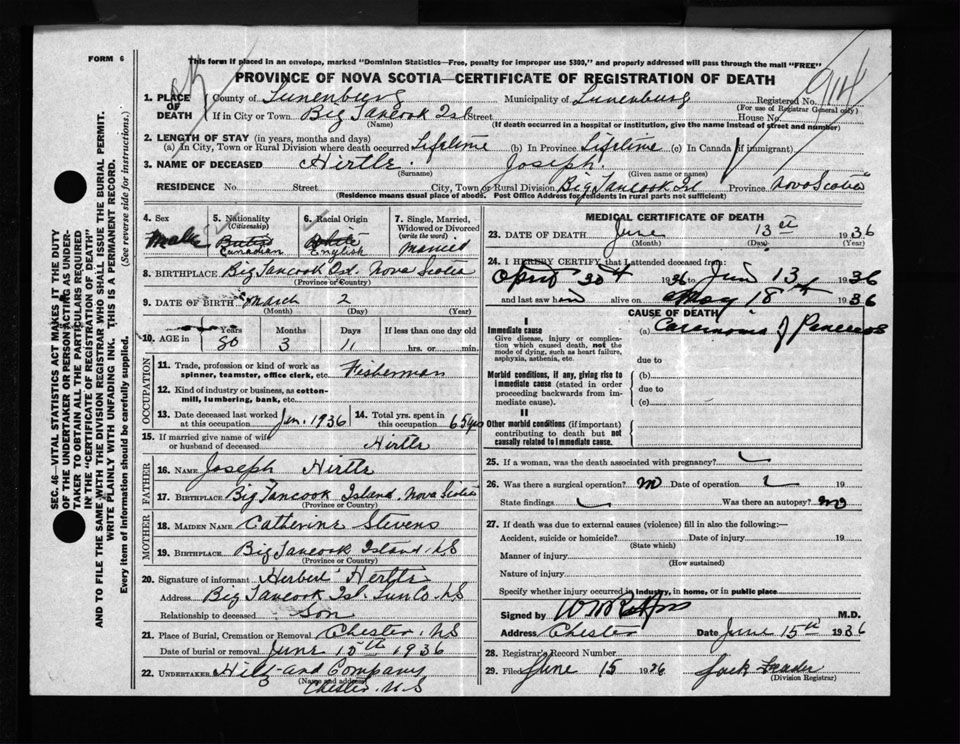 FORM 6
This form if placed in an envelope, marked "Dominion Statistics—Free, penalty for improper use $300," and properly addressed will pass through the mail "FREE"
PROVINCE OF NOVA SCOTIA—CERTIFICATE OF REGISTRATION OF DEATH
SEC. 46—VITAL STATISTICS ACT MAKES IT THE DUTY
OF THE UNDERTAKER OR PERSON ACTING AS UNDER-
TAKER TO OBTAIN ALL THE PARTICULARS REQUIRED
IN THE "CERTIFICATE OF REGISTRATION OF DEATH"
AND TO FILE THE SAME WITH THE DIVISION REGISTRAR WHO SHALL ISSUE THE BURIAL PERMIT.
WRITE PLAINLY WITH UNFADING INK. THIS IS A PERMANENT RECORD.
Every item of information should be carefully supplied. (See reverse side for instructions.)
1. PLACE OF DEATH County of Lunenburg Municipality of Lunenburg Registered No. 914
(For use of Registrar General only)
If in City or Town Big Tancook Isl Street House No.
(Name) (If death occurred in a hospital or institution, give the name instead of street and number)
2. LENGTH OF STAY (in years, months and days)
(a) In City, Town or Rural Division where death occurred Lifetime (b) In Province Lifetime (c) In Canada (if immigrant)
3. NAME OF DECEASED Hirtle. Joseph.
(Surname) (Given name or names)
RESIDENCE No. Street City, Town or Rural Division Big Tancook Isl Province Nova Scotia
(Residence means usual place of abode. Post Office Address for residents in rural parts not sufficient)
4. Sex Male
5. Nationality (Citizenship) Canadian
6. Racial Origin White English
7. Single, Married, Widowed or Divorced (write the word) Married
8. BIRTHPLACE Big Tancook Isl. Nova Scotia
(Province or Country)
9. DATE OF BIRTH March 2
(Month) (Day) (Year)
10. AGE in Years 80 Months 3 Days 11 If less than one day old hrs. or min.
OCCUPATION
11. Trade, profession or kind of work as spinner, teamster, office clerk, etc. Fisherman
12. Kind of industry or business, as cotton-mill, lumbering, bank, etc.
13. Date deceased last worked at this occupation Jan. 1936 14. Total yrs. spent in this occupation 65 yrs
15. If married give name of wife or husband of deceased Hirtle
FATHER
16. NAME Joseph Hirtle
17. BIRTHPLACE Big Tancook Island. Nova Scotia
(Province or Country)
MOTHER
18. MAIDEN NAME Catherine Stevens
19. BIRTHPLACE Big Tancook Island. N.S
(Province or Country)
20. Signature of informant Herbert Hirtle
Address Big Tancook Isl. Lun Co. N.S
Relationship to deceased Son
21. Place of Burial, Cremation or Removal Chester. N.S
Date of burial or removal June 15th 1936
22. UNDERTAKER Hilz and Company
(Name and address) Chester. N.S
MEDICAL CERTIFICATE OF DEATH
23. DATE OF DEATH June 13th 1936
(Month) (Day) (Year)
24. I HEREBY CERTIFY that I attended deceased from:
April 30th 1936 to June 13th 1936
and last saw him alive on May 18th 1936
CAUSE OF DEATH
I
Immediate cause (a) Carcinoma of Pancreas
Give disease, injury or complication which caused death, not the mode of dying, such as heart failure, asphyxia, asthenia, etc.
due to
Morbid conditions, if any, giving rise to immediate cause (stated in order proceeding backwards from immediate cause). (b)
due to
(c)
II
Other morbid conditions (if important) contributing to death but not causally related to immediate cause.
25. If a woman, was the death associated with pregnancy?
26. Was there a surgical operation? no Date of operation 19
State findings Was there an autopsy? no
27. If death was due to external causes (violence) fill in also the following:—
Accident, suicide or homicide? Date of injury 19
(State which)
Manner of injury
(How sustained)
Nature of injury
Specify whether injury occurred in industry, in home, or in public place
Signed by M.D.
Address Chester Date June 15th 1936
28. Registrar's Record Number
29. Filed June 15 1936 Jack
(Division Registrar)